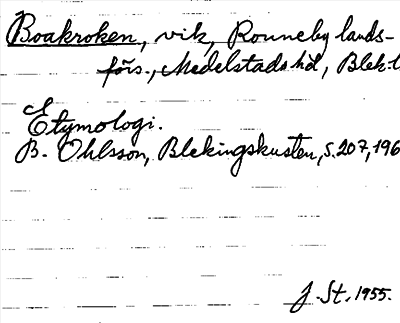 Boakroken, vik, Ronneby lands-
förs., Medelstads hd, Blek.l
Etymologi.
B. Ohlsson, Blekingskusten, s. 207, 196
J. St. 1955.